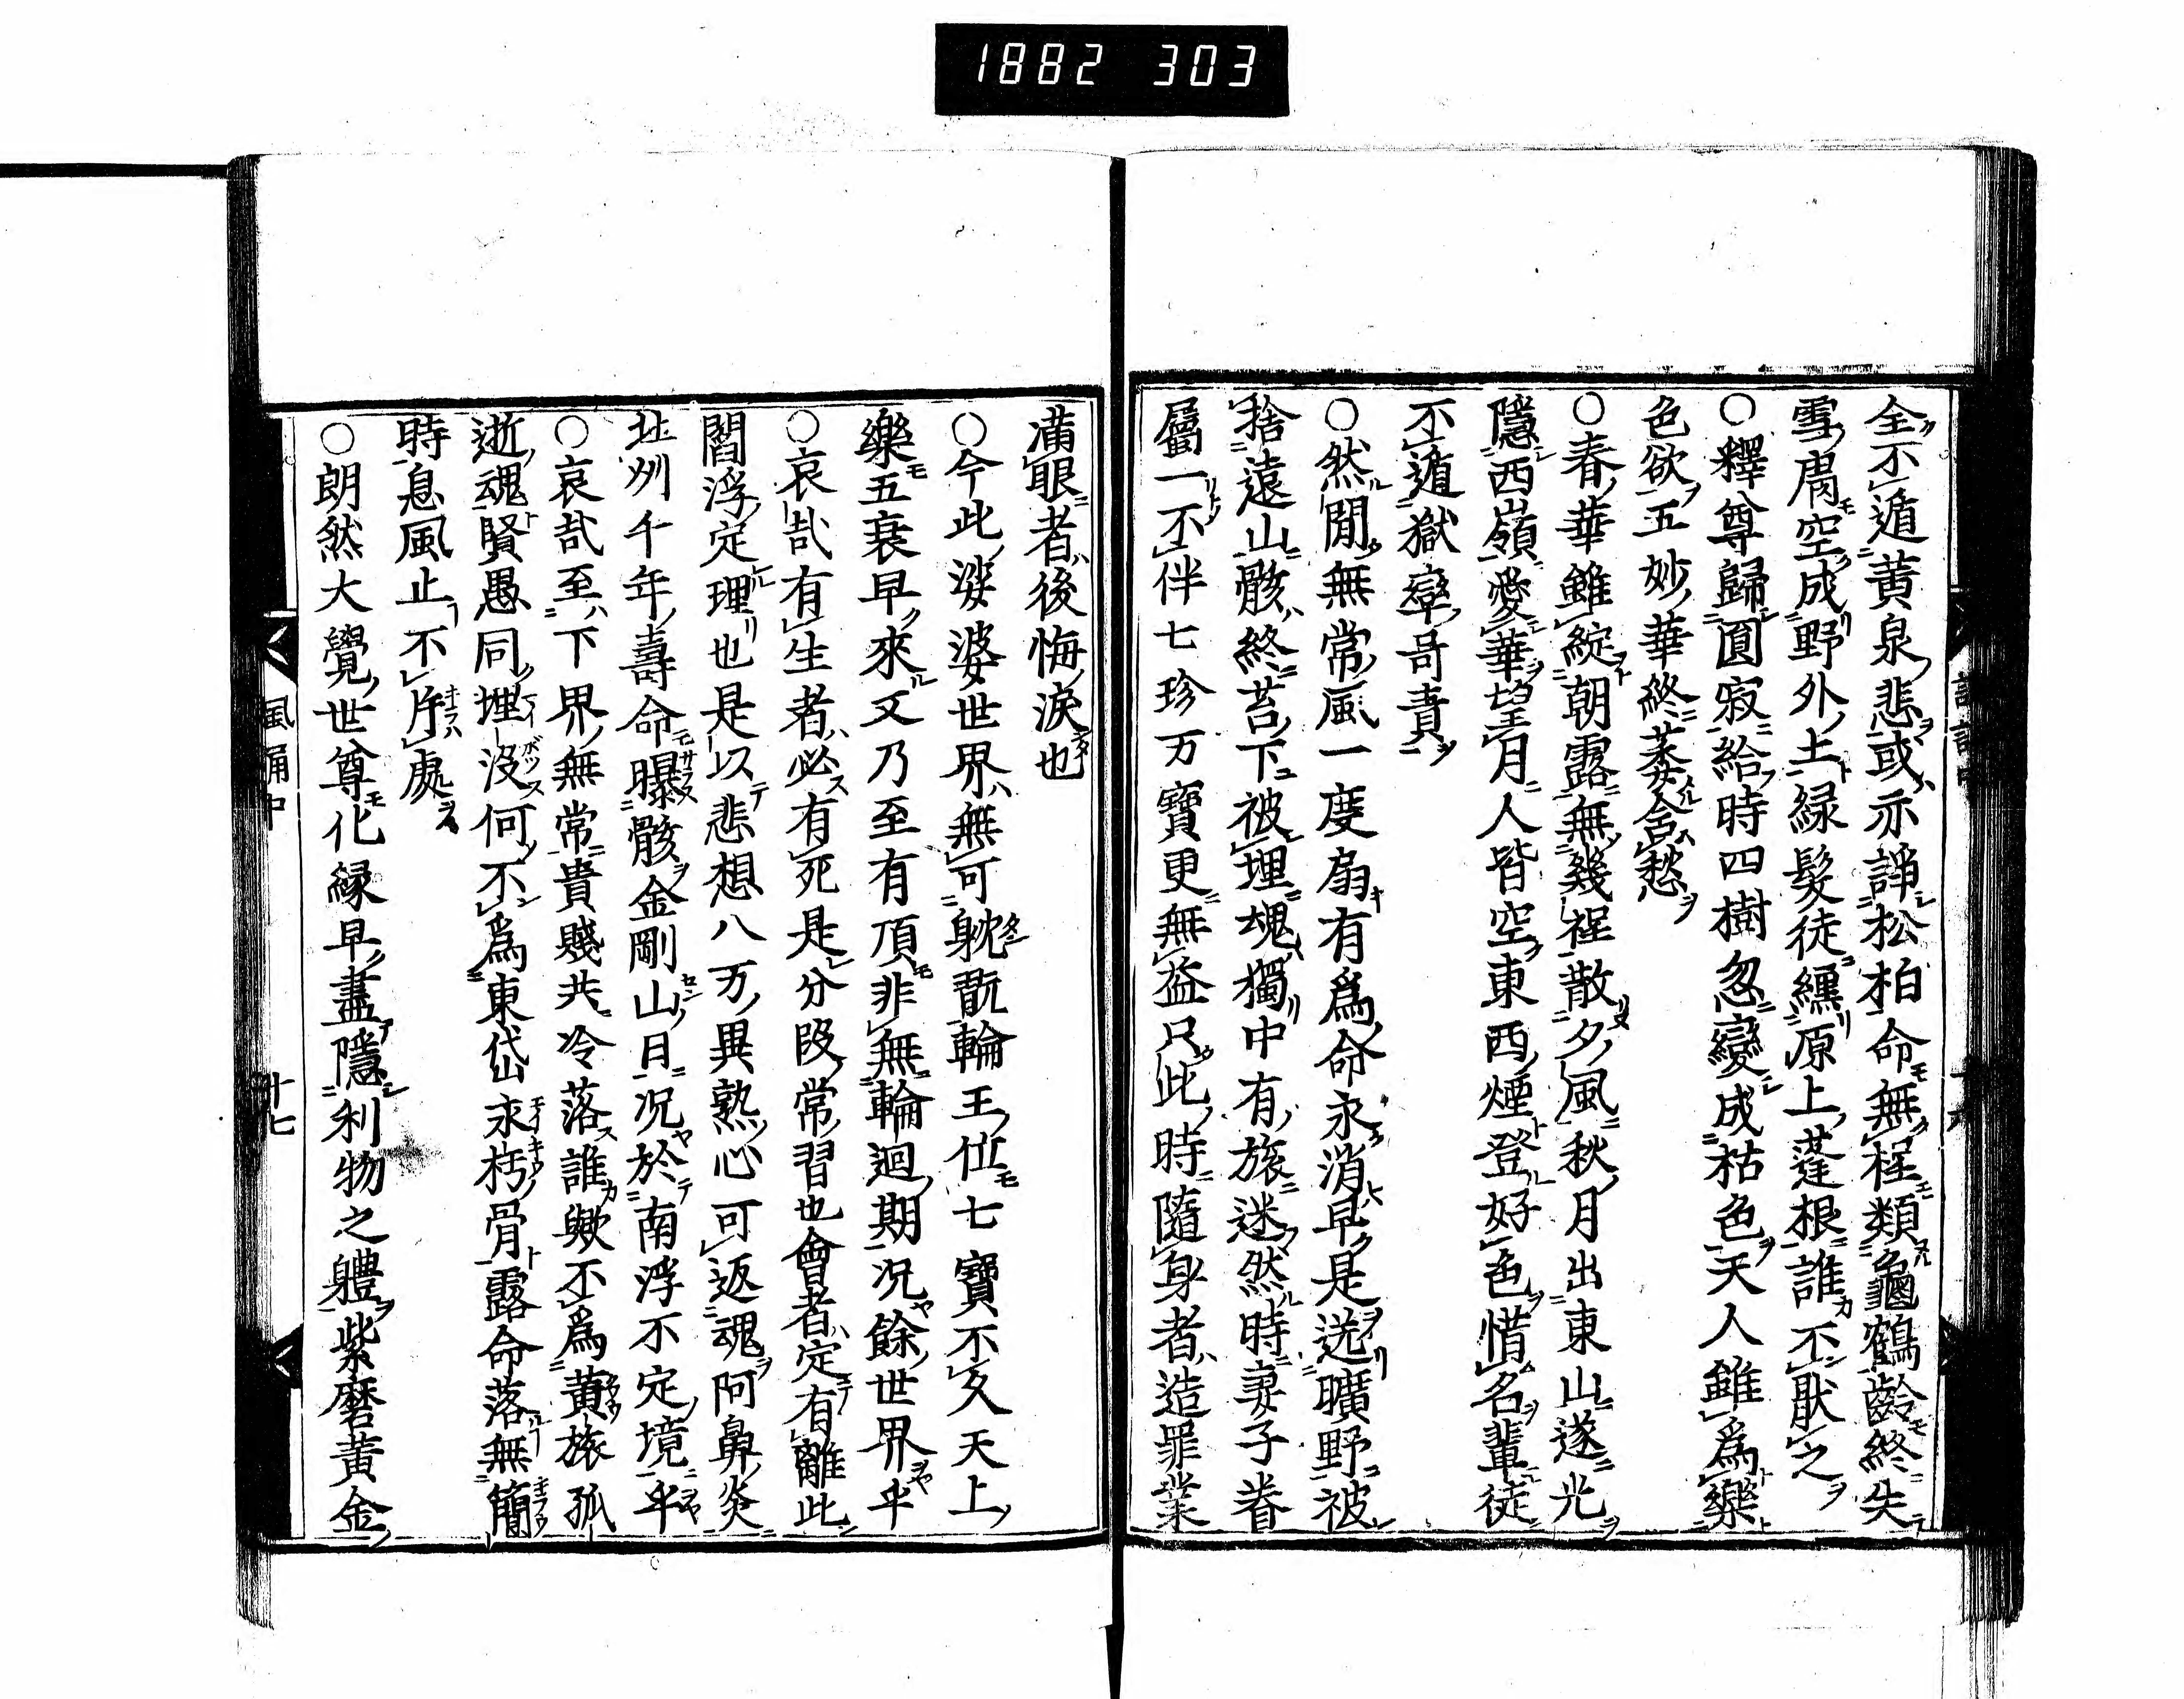 1882 303
全不遁黄泉悲或亦諍松柏命無程類龜鶴齡終失
雪膚空成野外土緑髮徒纏原上蓬根誰不猒之
○釋尊歸圓寂給時四樹忽變成枯色天人雖爲樂
色欲五妙華終萎含愁
○春華雖綻朝露無幾程散夕風秋月出東山遂光
隱西嶺愛華望月人皆空東西煙登好色惜名輩徒
不遁獄率呵責
○然間無常風一度扇有爲命永消早是送曠野被
捨遠山骸終苔下被埋魂獨中有旅迷然時妻子眷
屬一不伴七珍万寶更無益只此時隨身者造罪業
滿眼者後悔淚也
○今此娑婆世界無可躭翫輪王位七寶不久天上
樂五衰早來又乃至有頂非無輪迴期况餘世界乎
○哀哉有生者必有死是分段常習也會者定有離此
閻浮定理也是以悲想八万異熟心可返魂阿鼻炎
北州千年壽命曝骸金剛山日况於南浮不定境乎
○哀哉至下界無常貴賤共冷落誰歟不爲黄旅孤
逝魂賢愚同埋没何不爲東岱永朽骨露命落無簡
時息風止不片處
○朗然大覺世尊化緣早盡隱利物之體紫磨黄金
風誦中
十七